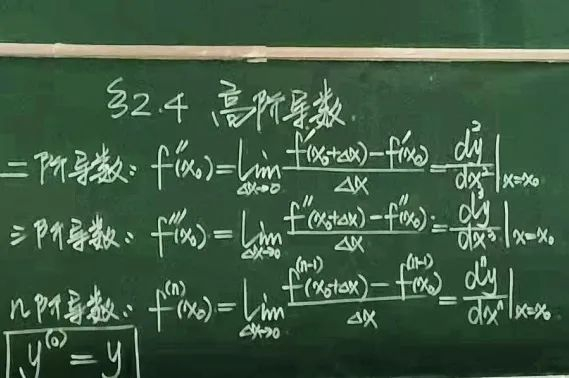 §2.4 高阶导数.
二阶导数: f''(x₀) = lim_{Δx→0} (f'(x₀+Δx) − f'(x₀))/Δx = d²y/dx² |_{x=x₀}
三阶导数: f'''(x₀) = lim_{Δx→0} (f''(x₀+Δx) − f''(x₀))/Δx = d³y/dx³ |_{x=x₀}
n阶导数: f⁽ⁿ⁾(x₀) = lim_{Δx→0} (f⁽ⁿ⁻¹⁾(x₀+Δx) − f⁽ⁿ⁻¹⁾(x₀))/Δx = dⁿy/dxⁿ |_{x=x₀}
y⁽⁰⁾ = y